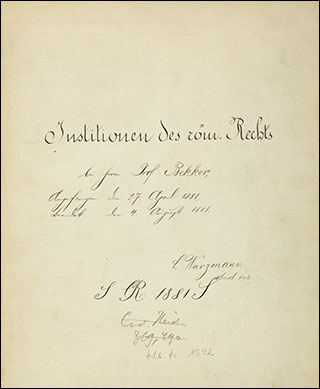 Institionen des röm. Rechts
bei Herrn Prof. Bekker.
Angefangen den 27. April 1881.
beendet den 4. August 1881.
L. Wurzmann
stud. iur.
S R 1881 S
Cod. Heid.
369, 490